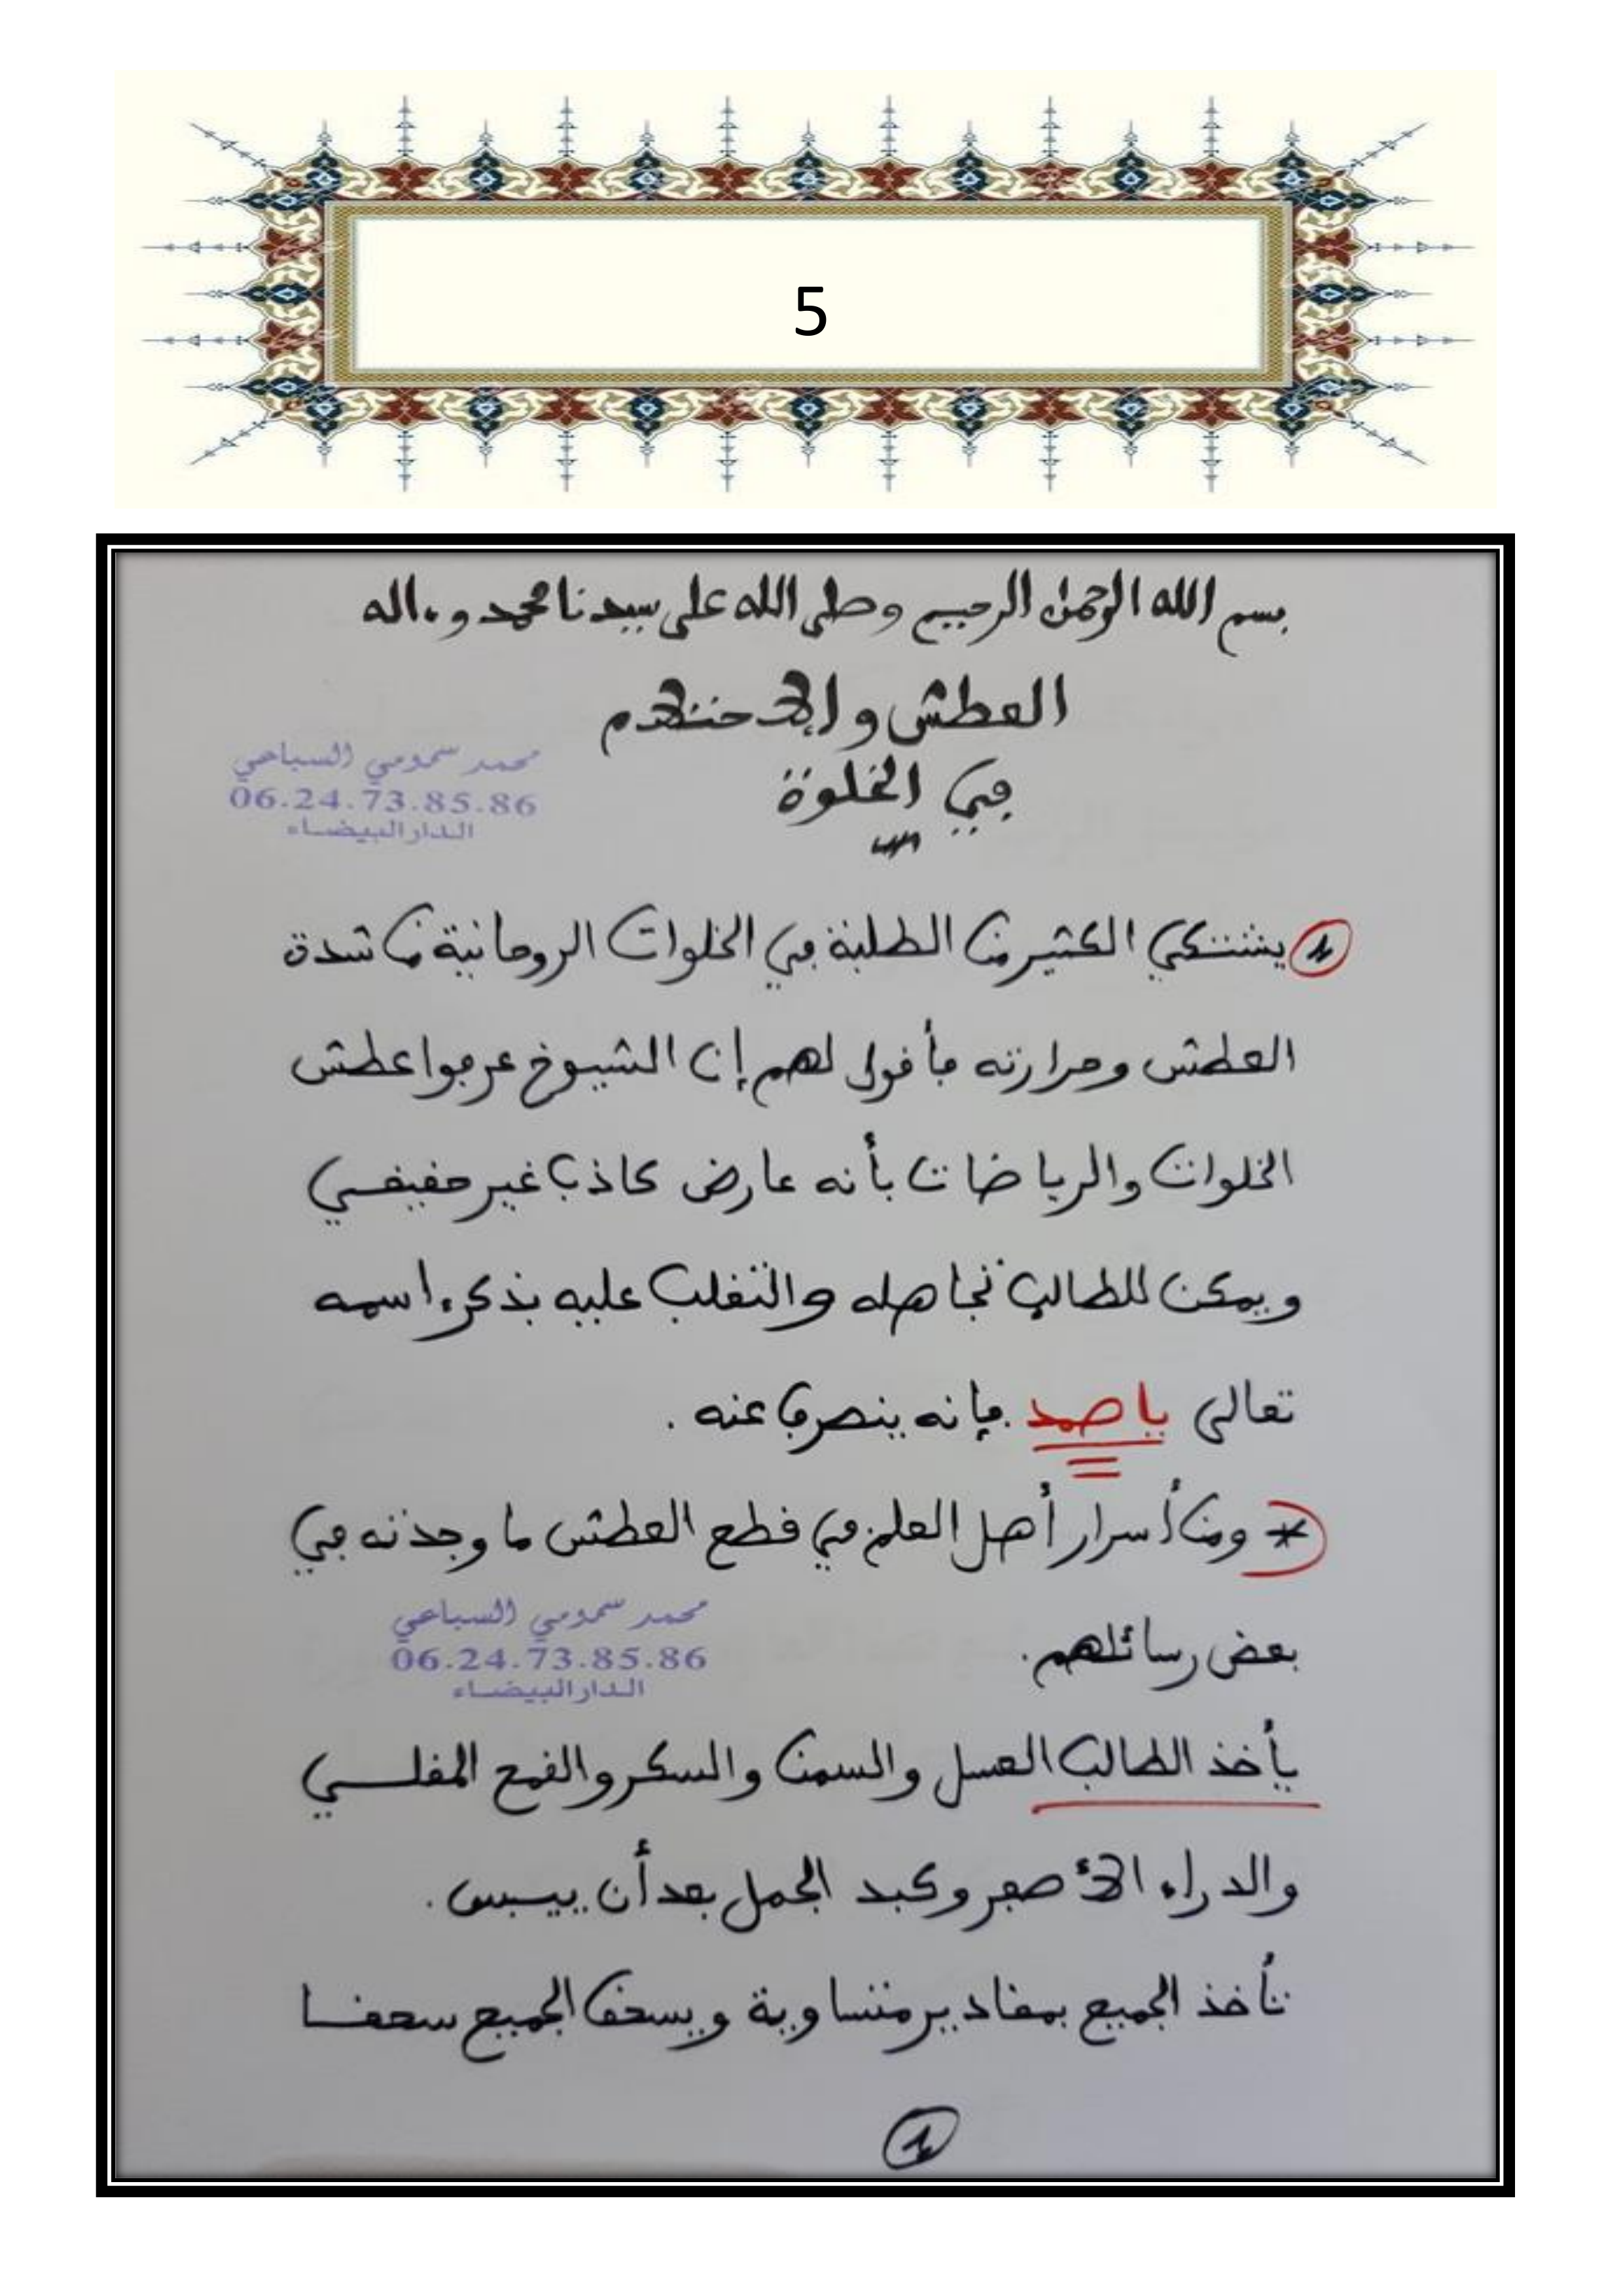 5
بسم الله الرحمن الرحيم وصلى الله على سيدنا محمد وءاله
العطش والاحتلام
في الخلوة
محمد سمومي السباعي
06.24.73.85.86
الدار البيضاء
يشتكي الكثير من الطلبة في الخلوات الروحانية من شدة
العطش وحرارته فأقول لهم إن الشيوخ عرفوا عطش
الخلوات والرياضات بأنه عارض كاذب غير حقيقي
ويمكن للطالب تجاهله والتغلب عليه بذكر اسمه
تعالى يا صمد فإنه ينصرف عنه .
* ومن أسرار أهل العلم في قطع العطش ما وجدته في
بعض رسائلهم.
محمد سمومي السباعي
06.24.73.85.86
الدار البيضاء
يأخذ الطالب العسل والسمن والسكر والقمح المقلي
والدراء الأصفر وكبد الجمل بعد أن ييبس.
تأخذ الجميع بمقادير متساوية ويسحق الجميع سحقا
1